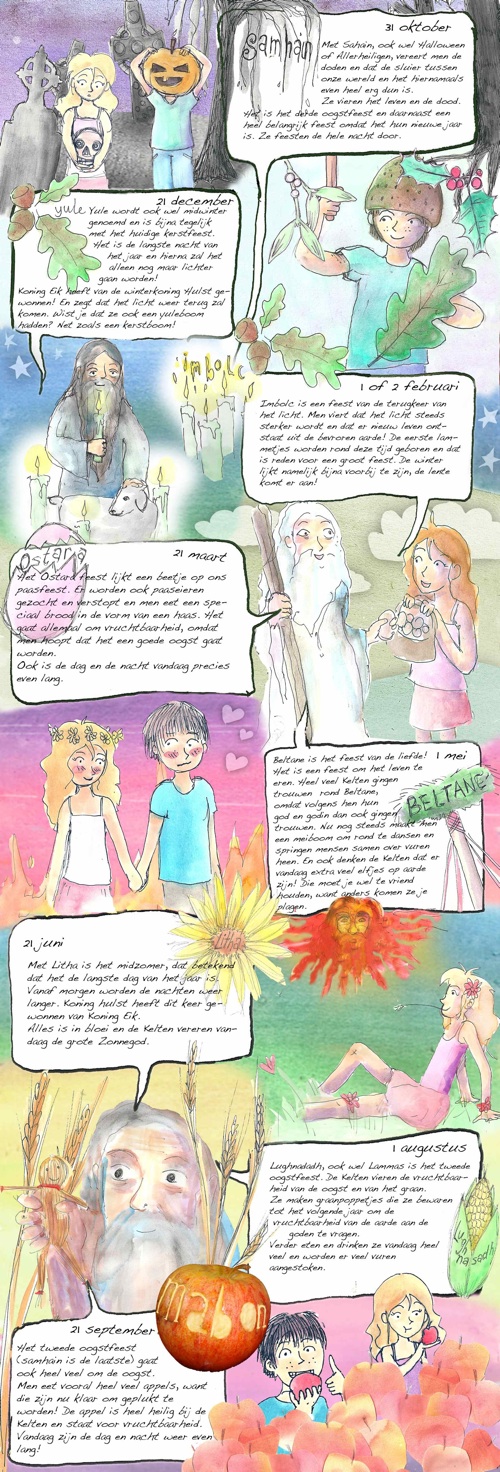 31 oktober
samhain
Met Sahain, ook wel Halloween
of Allerheiligen, vereert men de
doden en dat de sluier tussen
onze wereld en het hiernamaals
even heel erg dun is.
Ze vieren het leven en de dood.
Het is het derde oogstfeest en daarnaast een
heel belangrijk feest omdat het hun nieuwe jaar
is. Ze feesten de hele nacht door.
21 december
yule
Yule wordt ook wel midwinter
genoemd en is bijna tegelijk
met het huidige kerstfeest.
Het is de langste nacht van
het jaar en hierna zal het
alleen nog maar lichter
gaan worden!
Koning Eik heeft van de winterkoning Hulst ge-
wonnen! En zegt dat het licht weer terug zal
komen. Wist je dat ze ook een yuleboom
hadden? Net zoals een kerstboom!
imbolc
1 of 2 februari
Imbolc is een feest van de terugkeer van
het licht. Men viert dat het licht steeds
sterker wordt en dat er nieuw leven ont-
staat uit de bevroren aarde! De eerste lam-
metjes worden rond deze tijd geboren en dat
is reden voor een groot feest. De winter
lijkt namelijk bijna voorbij te zijn, de lente
komt er aan!
Ostara
21 maart
Het Ostara feest lijkt een beetje op ons
paasfeest. Er worden ook paaseieren
gezocht en verstopt en men eet een spe-
ciaal brood in de vorm van een haas. Het
gaat allemaal om vruchtbaarheid, omdat
men hoopt dat het een goede oogst gaat
worden.
Ook is de dag en de nacht vandaag precies
even lang.
1 mei
BELTANE
Beltane is het feest van de liefde!
Het is een feest om het leven te
eren. Heel veel Kelten gingen
trouwen rond Beltane,
omdat volgens hen hun
god en godin dan ook gingen
trouwen. Nu nog steeds maakt men
een meiboom om rond te dansen en
springen mensen samen over vuren
heen. En ook denken de Kelten dat er
vandaag extra veel elfjes op aarde
zijn! Die moet je wel te vriend
houden, want anders komen ze je
plagen.
21 juni
Litha
Met Litha is het midzomer, dat betekend
dat het de langste dag van het jaar is.
Vanaf morgen worden de nachten weer
langer. Koning hulst heeft dit keer ge-
wonnen van Koning Eik.
Alles is in bloei en de Kelten vereren van-
daag de grote Zonnegod.
1 augustus
Lughnadadh, ook wel Lammas is het tweede
oogstfeest. De Kelten vieren de vruchtbaar-
heid van de oogst en van het graan.
Ze maken graanpoppetjes die ze bewaren
tot het volgende jaar om de
vruchtbaarheid van de aarde aan de
goden te vragen.
Verder eten en drinken ze vandaag heel
veel en worden er veel vuren
aangestoken.
mabon
21 september
Het tweede oogstfeest
(samhain is de laatste) gaat
ook heel veel om de oogst.
Men eet vooral heel veel appels, want
die zijn nu klaar om geplukt te
worden! De appel is heel heilig bij de
Kelten en staat voor vruchtbaarheid.
Vandaag zijn de dag en nacht weer even
lang!